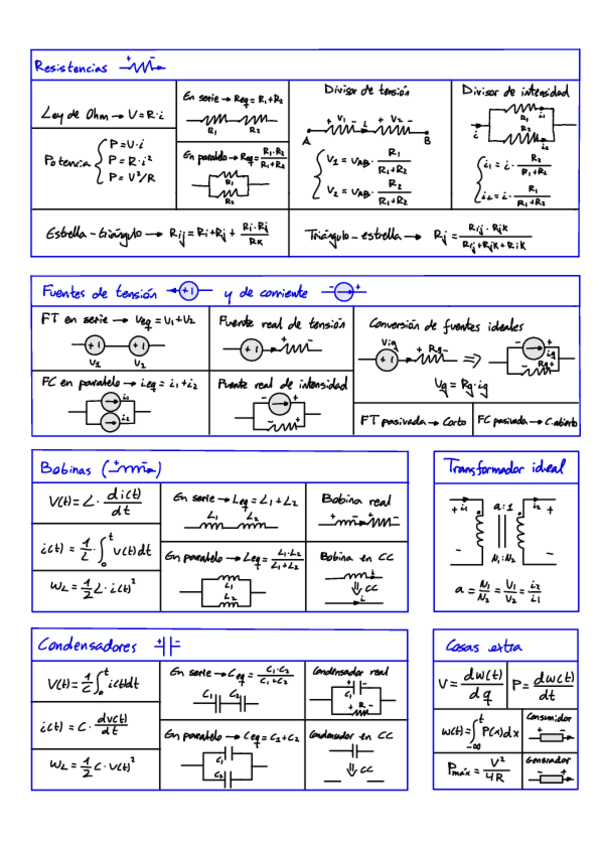 Resistencias + -
Ley de Ohm → V=R·i
Potencia
P=V·i
P=R·i²
P=V²/R
En serie → Req=R1+R2
R1 R2
En paralelo → Req= R1·R2 / R1+R2
R1
R2
Divisor de tensión
+ V1 - i + V2 -
A R1 R2 B
V1 = VAB · R1 / R1+R2
V2 = VAB · R2 / R1+R2
Divisor de intensidad
R1 i1
i R2 i2
i1 = i · R2 / R1+R2
i2 = i · R1 / R1+R2
Estrella-triángulo → Rij = Ri+Rj + Ri·Rj / Rk
Triángulo-estrella → Rj = Rij·Rjk / Rij+Rjk+Rik
Fuentes de tensión y de corriente
FT en serie → Veq=V1+V2
V1 V2
FC en paralelo → ieq=i1+i2
i1
i2
Fuente real de tensión
Fuente real de intensidad
Conversión de fuentes ideales
Vig + Rg - ⇒ ig
Rg
Vg = Rg·ig
FT pasivada → Corto
FC pasivada → C.abierto
Bobinas (+ -)
V(t) = L · di(t) / dt
i(t) = 1/L · ∫0^t v(t)dt
WL = 1/2 L · i(t)²
En serie → Leq = L1+L2
L1 L2
En paralelo → Leq= L1·L2 / L1+L2
L1
L2
Bobina real
Bobina en CC
i
⇓ CC
i
Transformador ideal
+ i1 a:1 i2 +
- N1:N2 -
a = N1/N2 = V1/V2 = i2/i1
Condensadores + -
V(t) = 1/C ∫0^t i(t)dt
i(t) = C · dv(t) / dt
WL = 1/2 C · V(t)²
En serie → Ceq = C1·C2 / C1+C2
C1 C2
En paralelo → Ceq = C1+C2
C1
C2
Condensador real
C1
+ R -
Condensador en CC
⇓ CC
Cosas extra
V = dw(t) / dq
P = dw(t) / dt
w(t)=∫-∞^t P(x)dx
Consumidor
+ -
Pmáx = V² / 4R
Generador
- +